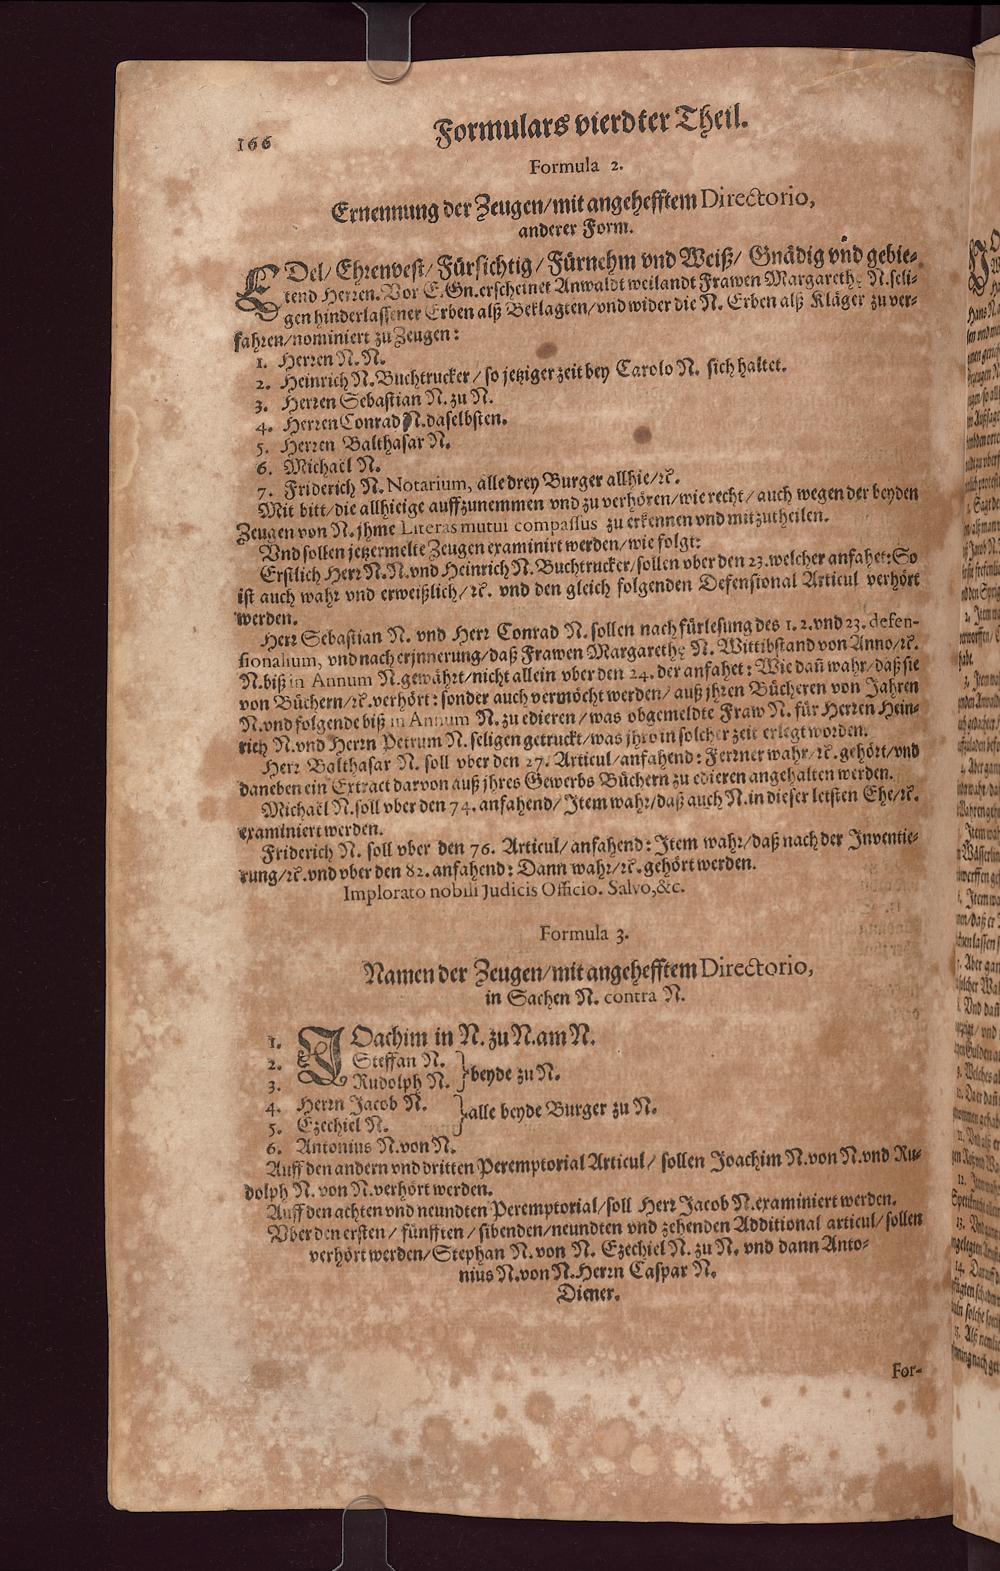 166
Formulars vierdter Theil.
Formula 2.
Ernennung der Zeugen/mit angehefftem Directorio,
anderer Form.
EDel/ Ehrenvest/ Fürsichtig/ Fürnehm vnd Weiß/ Gnädig vnd gebie-
tend Herren. Vor E. Gn. erscheinet Anwaldt weilandt Frawen Margarethę N. seli-
gen hinderlassener Erben alß Beklagten/vnd wider die N. Erben alß Kläger zu ver-
fahren/nominiert zu Zeugen:
1. Herren N. N.
2. Heinrich N. Buchtrucker/ so jetziger zeit bey Carolo N. sich haltet.
3. Herren Sebastian N. zu N.
4. Herren Conrad N. daselbsten.
5. Herren Balthasar N.
6. Michaël N.
7. Friderich N. Notarium, alle drey Burger allhie/ꝛc.
Mit bitt/die allhieige auffzunemmen vnd zu verhören/wie recht/ auch wegen der beyden
Zeugen von N. jhme Literas mutui compassus zu erkennen vnd mitzutheilen.
Vnd sollen jetzermelte Zeugen examinirt werden/wie folgt:
Erstlich Herr N. N. vnd Heinrich N. Buchtrucker/sollen vber den 23. welcher anfahet: So
ist auch wahr vnd erweißlich/ꝛc. vnd den gleich folgenden Defensional Articul verhört
werden.
Herr Sebastian N. vnd Herr Conrad N. sollen nach fürlesung des 1. 2. vnd 23. defen-
sionalium, vnd nach erjnnerung/daß Frawen Margarethę N. Wittibstand von Anno/ꝛc.
N. biß in Annum N. gewährt/nicht allein vber den 24. der anfahet: Wie dañ wahr/daß sie
von Büchern/ꝛc. verhört: sonder auch vermöcht werden/ auß jhren Bücheren von Jahren
N. vnd folgende biß in Annum N. zu edieren/ was obgemeldte Fraw N. für Herren Hein-
rich N. vnd Herrn Petrum N. seligen getruckt/was jhro in solcher zeit erlegt worden.
Herr Balthasar N. soll vber den 27. Articul/anfahend: Ferrner wahr/ꝛc. gehört/vnd
daneben ein Extract darvon auß jhres Gewerbs Büchern zu edieren angehalten werden.
Michaël N. soll vber den 74. anfahend/ Item wahr/daß auch N. in dieser letsten Ehe/ꝛc.
examiniert werden.
Friderich N. soll vber den 76. Articul/ anfahend: Item wahr/daß nach der Inventie-
rung/ꝛc. vnd vber den 82. anfahend: Dann wahr/ꝛc. gehört werden.
Implorato nobili Judicis Officio. Salvo,&c.
Formula 3.
Namen der Zeugen/mit angehefftem Directorio,
in Sachen N. contra N.
1. JOachim in N. zu N. am N.
2. Steffan N.
3. Rudolph N. } beyde zu N.
4. Herrn Jacob N.
5. Ezechiel N. } alle beyde Burger zu N.
6. Antonius N. von N.
Auff den andern vnd dritten Peremptorial Articul/ sollen Joachim N. von N. vnd Ru-
dolph N. von N. verhört werden.
Auff den achten vnd neundten Peremptorial/soll Herr Jacob N. examiniert werden.
Vber den ersten/ fünfften/ sibenden/neundten vnd zehenden Additional articul/ sollen
verhört werden/Stephan N. von N. Ezechiel N. zu N. vnd dann Anto-
nius N. von N. Herrn Caspar N.
Diener.
For-